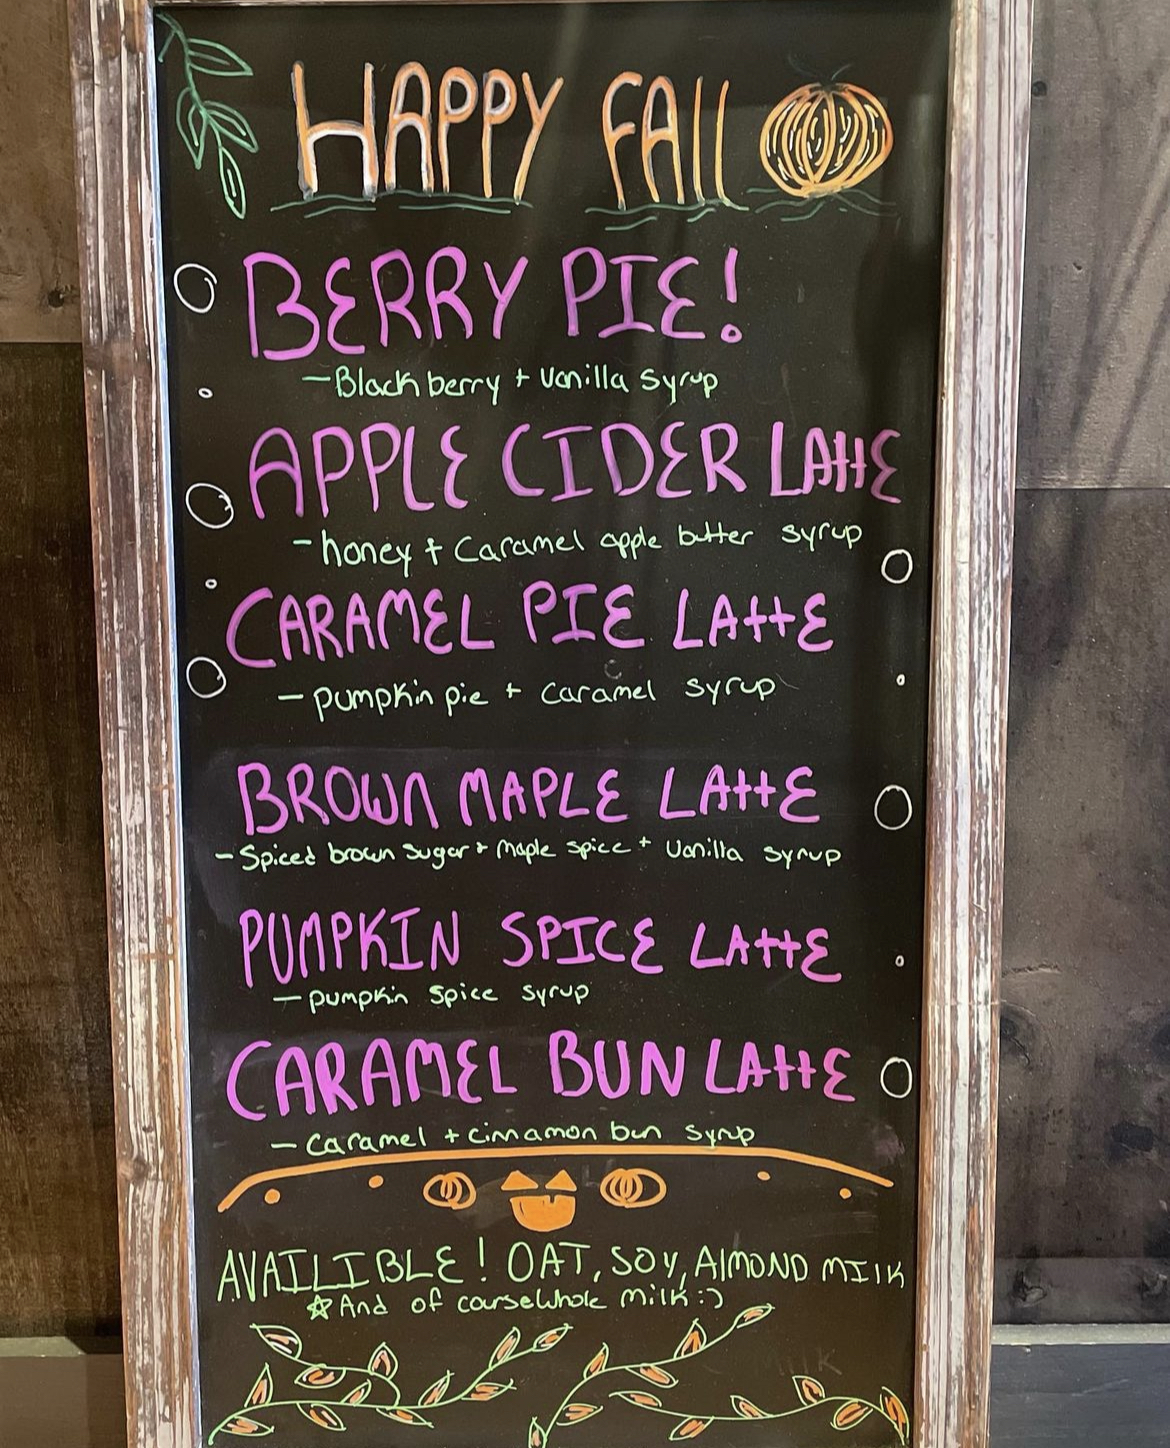 HAPPY FALL
BERRY PIE!
- Blackberry + Vanilla Syrup
APPLE CIDER LATTE
- honey + Caramel apple butter syrup
CARAMEL PIE LATTE
- pumpkin pie + caramel syrup
BROWN MAPLE LATTE
- Spiced brown sugar + maple spice + Vanilla syrup
PUMPKIN SPICE LATTE
- pumpkin spice syrup
CARAMEL BUN LATTE
- caramel + cinnamon bun syrup
AVAILIBLE! OAT, SOY, AlMOND MILK
☆ And of course whole milk :)